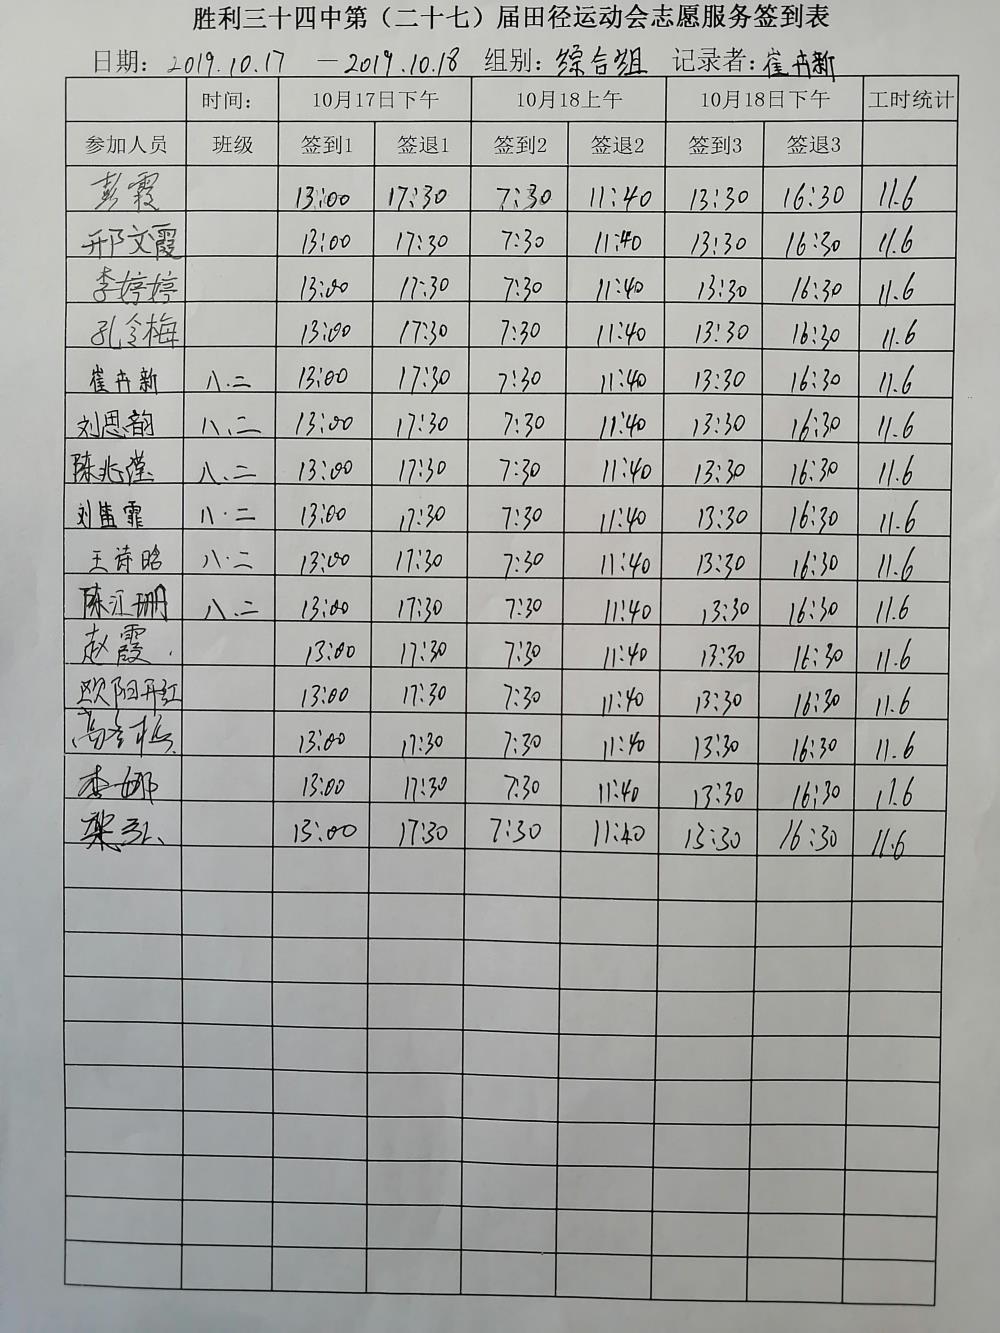 胜利三十四中第（二十七）届田径运动会志愿服务签到表
日期：2019.10.17 —2019.10.18 组别：综合组 记录者：崔卉新
时间： 10月17日下午 10月18上午 10月18日下午 工时统计
参加人员 班级 签到1 签退1 签到2 签退2 签到3 签退3
彭霞 13:00 17:30 7:30 11:40 13:30 16:30 11.6
邢文霞 13:00 17:30 7:30 11:40 13:30 16:30 11.6
李婷婷 13:00 17:30 7:30 11:40 13:30 16:30 11.6
孔令梅 13:00 17:30 7:30 11:40 13:30 16:30 11.6
崔卉新 八.二 13:00 17:30 7:30 11:40 13:30 16:30 11.6
刘思韵 八.二 13:00 17:30 7:30 11:40 13:30 16:30 11.6
陈兆滢 八.二 13:00 17:30 7:30 11:40 13:30 16:30 11.6
刘 霏 八.二 13:00 17:30 7:30 11:40 13:30 16:30 11.6
王诗晗 八.二 13:00 17:30 7:30 11:40 13:30 16:30 11.6
陈江珊 八.二 13:00 17:30 7:30 11:40 13:30 16:30 11.6
赵霞 13:00 17:30 7:30 11:40 13:30 16:30 11.6
欧阳开红 13:00 17:30 7:30 11:40 13:30 16:30 11.6
高 梅 13:00 17:30 7:30 11:40 13:30 16:30 11.6
李娜 13:00 17:30 7:30 11:40 13:30 16:30 11.6
梁 13:00 17:30 7:30 11:40 13:30 16:30 11.6